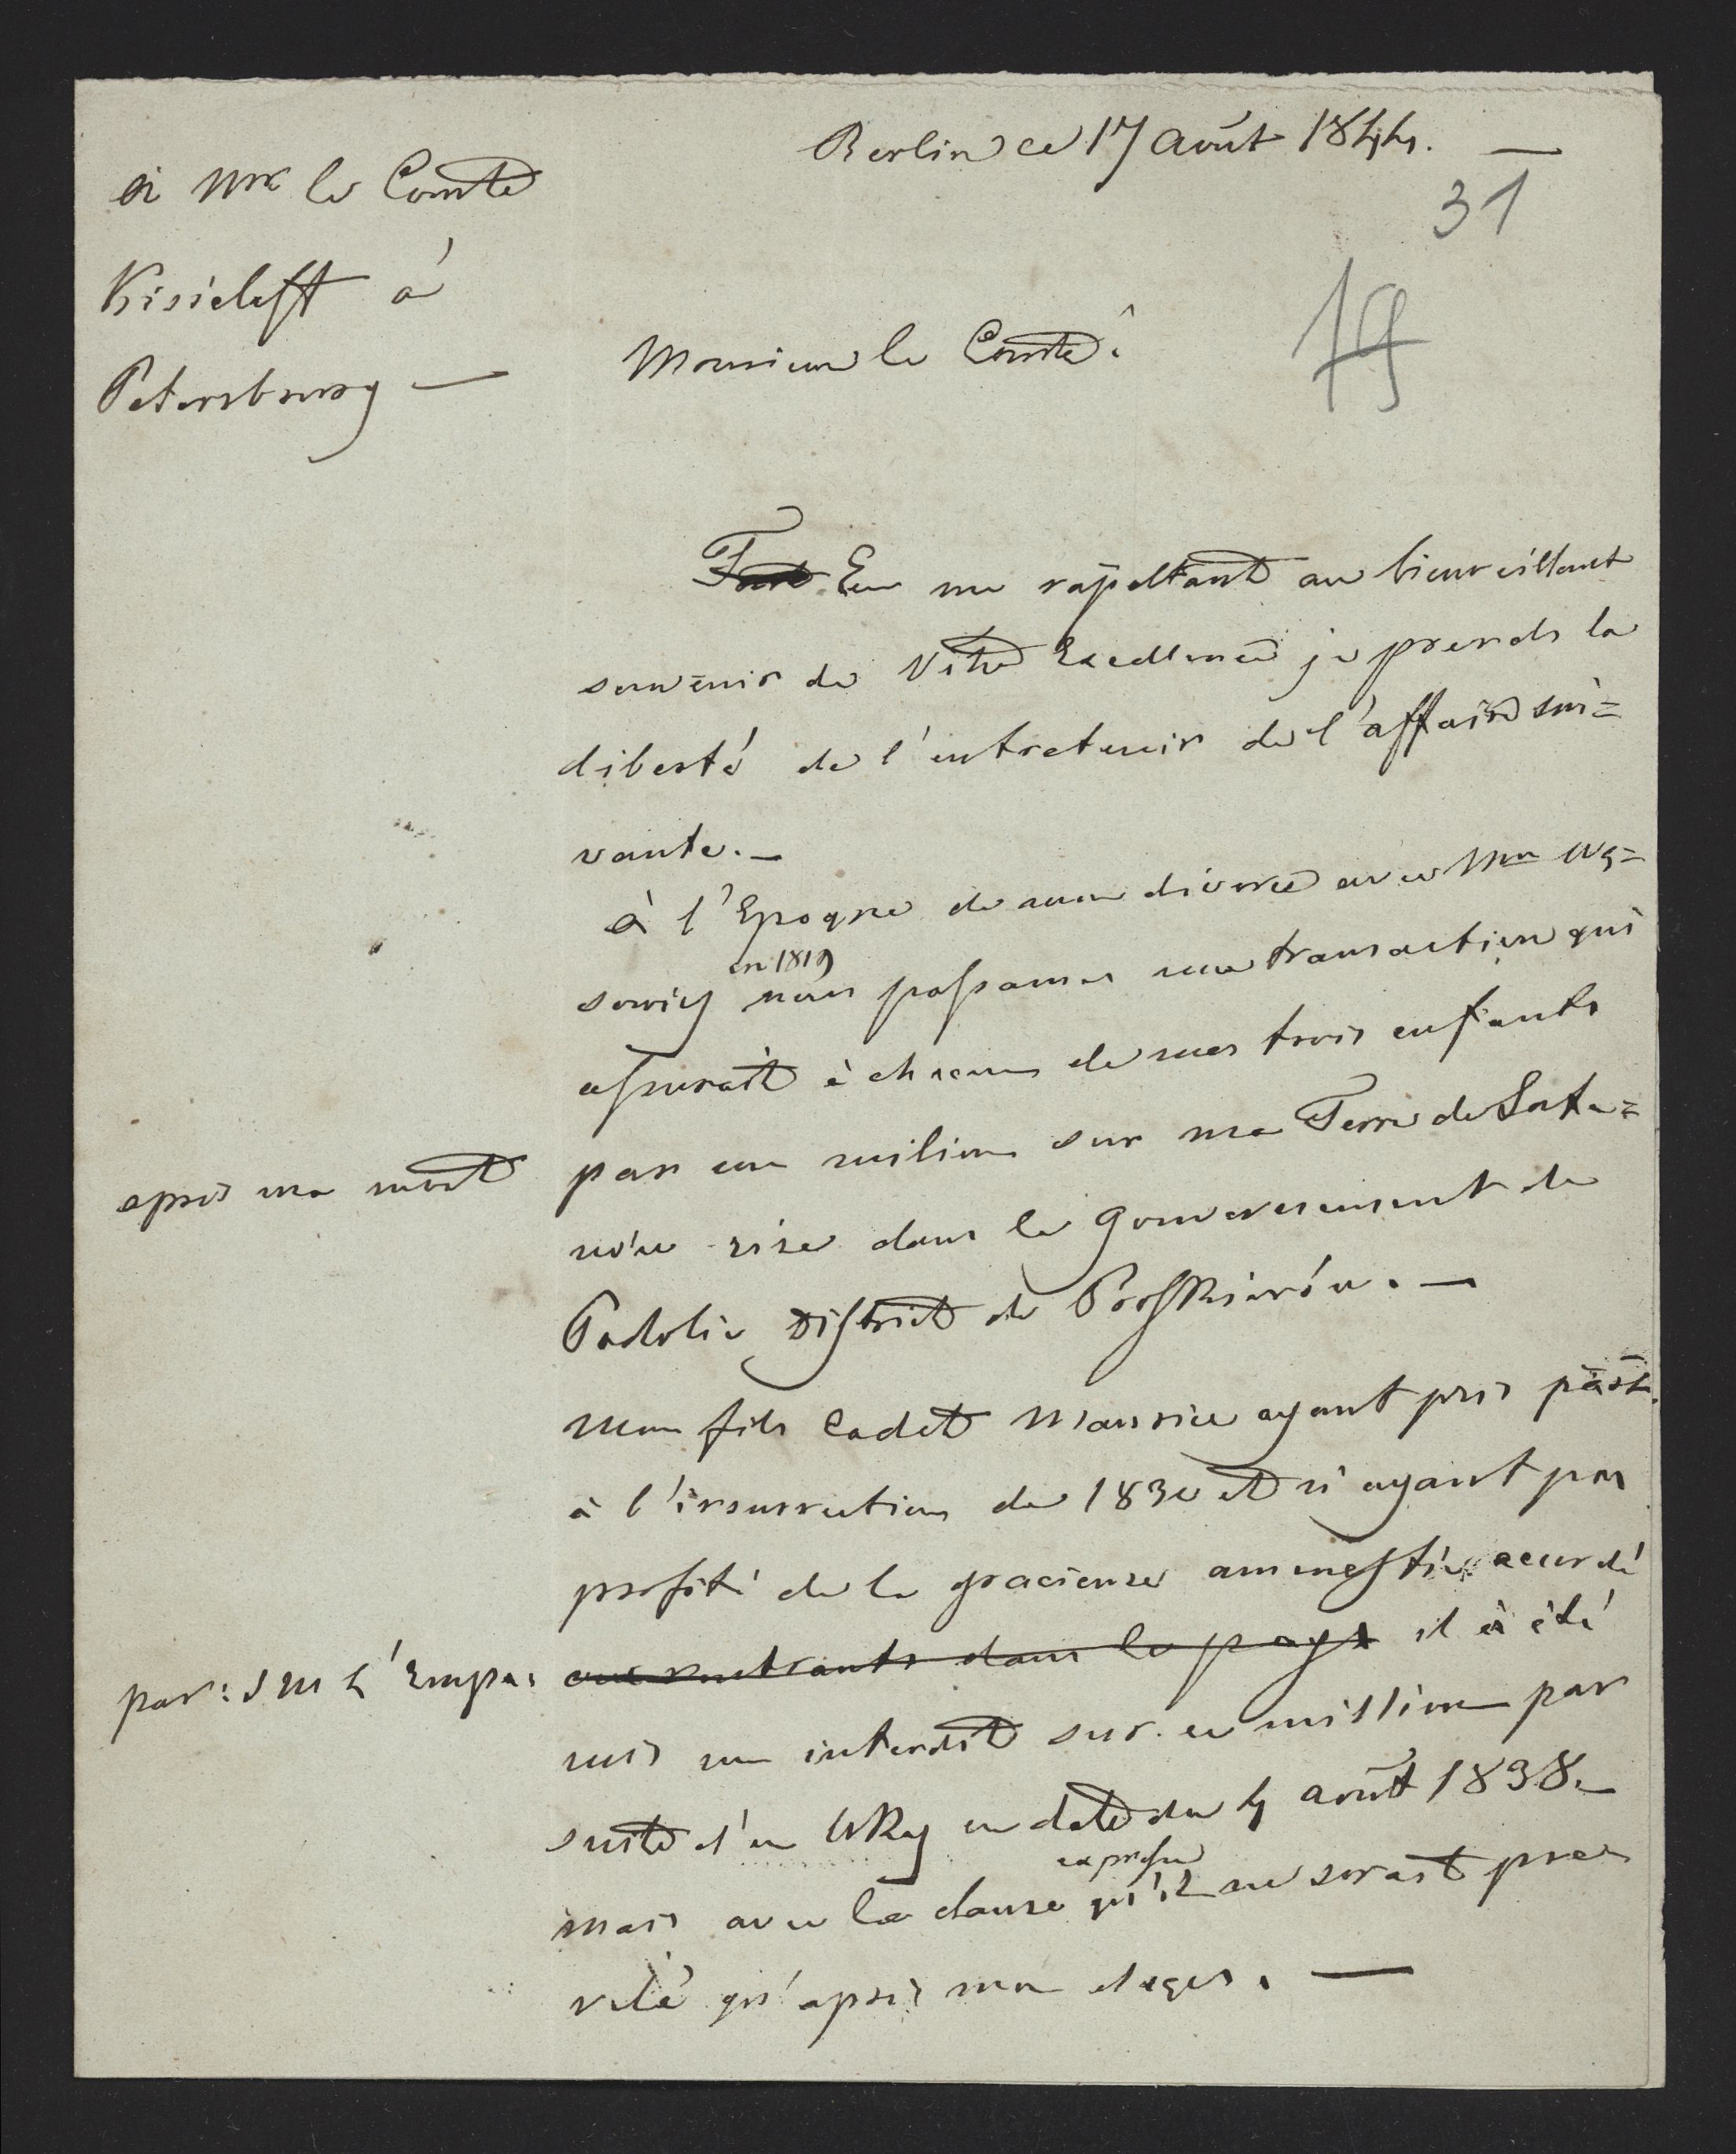 Berlin ce 17 août 1844. —
31
à Mr le Comte
Kisieleff à
Petersbourg —
Monsieur le Comte!
En me rapellant au bienveillant
souvenir de Votre Excellence je prends la
liberté de l'entretenir de l'affaire sui=
vante. —
à l'Epoque de mon divorce avec Mme Wą=
sowicz nous passames une transaction qui
en 1819
assurait à chacun de mes trois enfants
par un milion sur ma Terre de Sata=
après ma mort
nów sise dans le Gouvernement de
Podolie District de Proskirów. —
Mon fils Cadet Maurice ayant pris part
à l'insurrection de 1830 et n'ayant pas
profité de la gracieuse amnestie accordé
aux rentrants dans le pays il à été
par: S M l'Empe:
mis un interdit sur ce million par
suite d'un Ukaz en date du 4 août 1838 —
mais avec la clause qu'il ne serait pre
expresse
vélé qu'après mon deçes. —